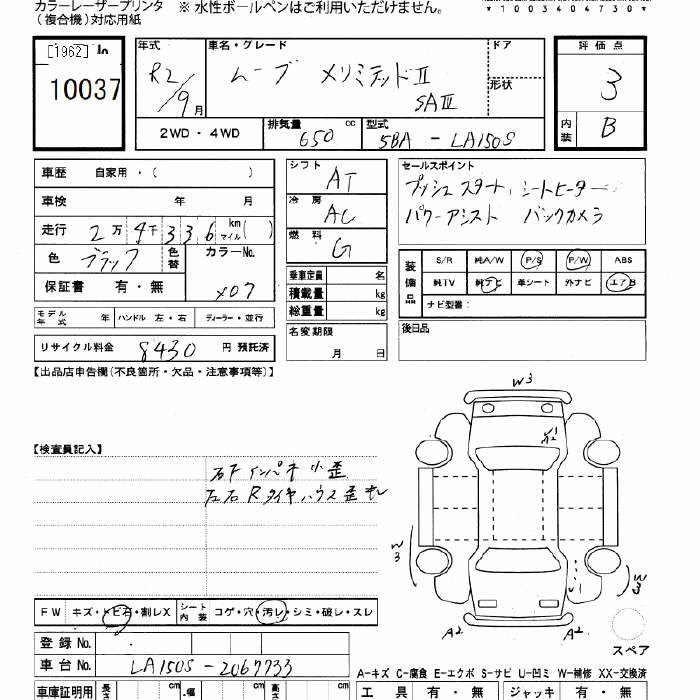 カラーレーザープリンタ ※ 水性ボールペンはご利用いただけません。
(複合機)対応用紙
*1003404730*
[1962] No
10037
年式 R2/9月
車名・グレード ムーブ メリミテッドⅡ
SAⅢ
ドア
形状
2WD・4WD
排気量 650 cc
型式 5BA - LA150S
評価点 3
内装 B
車歴 自家用・( )
車検 年 月
走行 2万 4千 3 3 6 km マイル ( )
色 ブラック 色替 カラーNo.
保証書 有・無 X07
シフト AT
冷房 AC
燃料 G
乗車定員 名
積載量 kg
総重量 kg
セールスポイント
プッシュスタート、シートヒーター
パワーアシスト バックカメラ
装備品 S/R 純A/W P/S P/W ABS
純TV 純ナビ 革シート 外ナビ エアB
ナビ型番:
モデル年式 年 ハンドル 左・右 ディーラー・並行
名変期限 月 日
後日品
リサイクル料金 8430 円 預託済
【出品店申告欄(不良箇所・欠品・注意事項等)】
【検査員記入】
右F インパネ 小歪
左右 R タイヤハウス 歪モレ
W3
W3
W3
A2
A2
スペア
FW キズ・トビ石・割レX シート内装 コゲ・穴・汚レ・シミ・破レ・スレ
登録 No.
車台 No. LA150S - 2067733
A-キズ C-腐食 E-エクボ S-サビ U-凹ミ W-補修 XX-交換済
車庫証明用 長さ cm 幅 cm 高さ cm
工具 有・無 ジャッキ 有・無